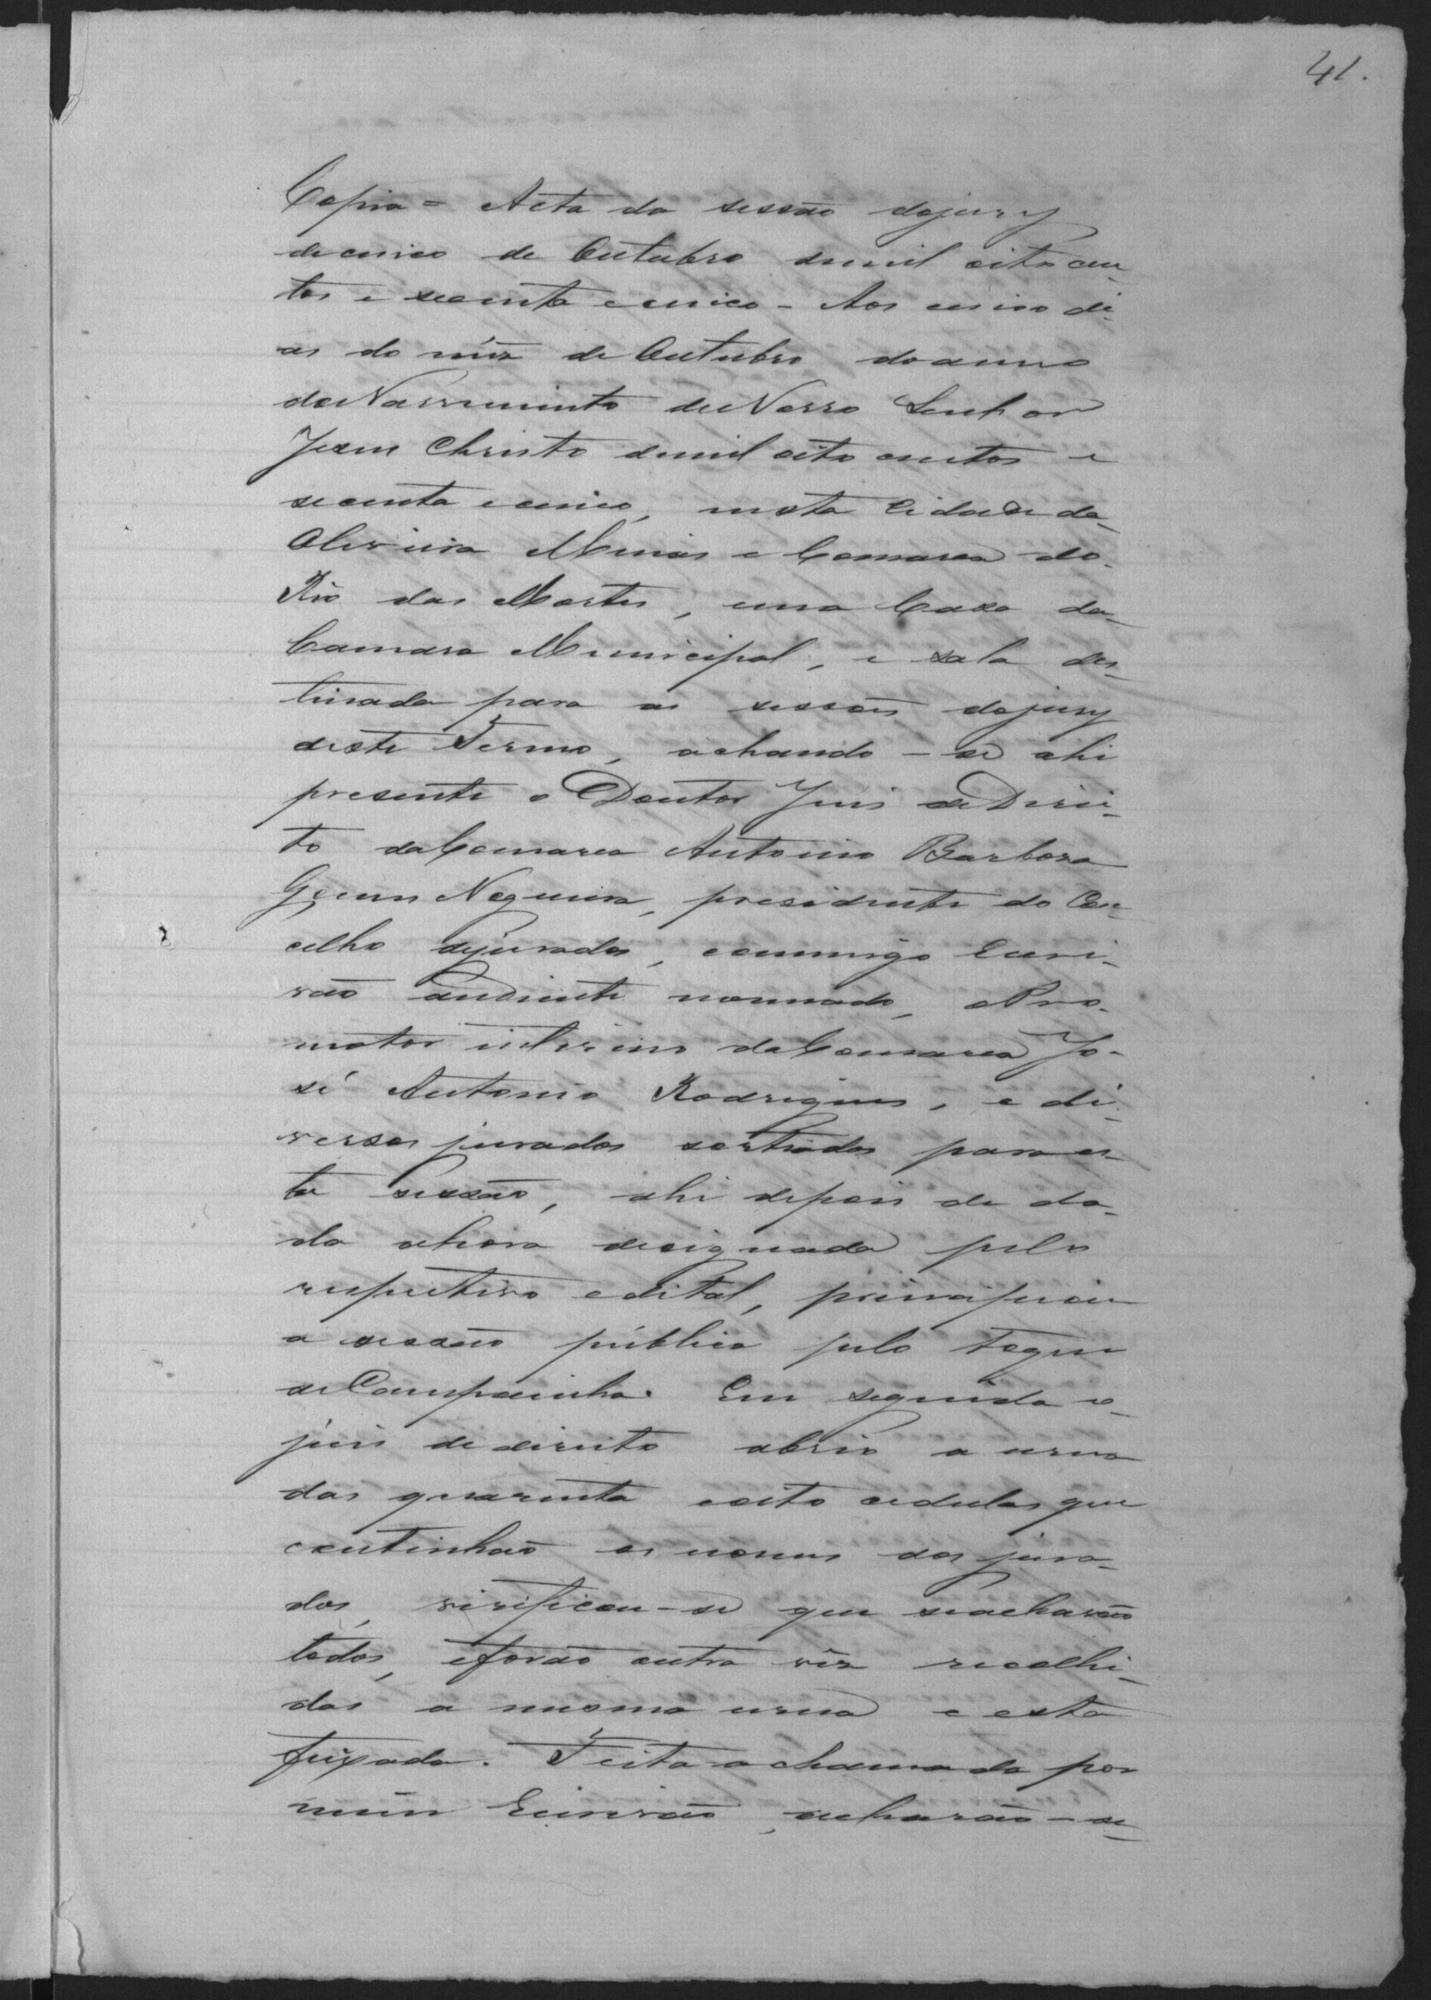 41.
Copia = Acta da sessão dojury
decinco de Outubro demil oito cen-
tos e secenta ecinco - Aos cinco di-
as do mêz de Outubro doanno
doNascimento deNosso Senhor
Jesus Christo demil oito centos e
secenta ecinco, nesta Cidade da
Oliveira Minas e Comarca do
Rio das Mortes, em a Casa da
Camara Municipal, e sala des-
tinada para as sessões dojury
deste Termo, achando-se ahi
presente o Doutor Juis deDirei-
to daComarca Antonio Barbosa
Gomes Nogueira, presidente do Con-
celho dejurados, commigo Escri-
vão audiente nomeado, oPro-
motor interino daComarca Jo-
sé Antonio Rodrigues, e di-
versos jurados sorteados para es-
ta sessão, ahi depois de da-
da ahora designada pelo
respectivo edital, principiou
a sessão pública pelo toque
deCampainha. Em seguida o
juis dedireito abrio a urna
das quarenta eoito cedulas que
continhão os nomes dos jura-
dos, virificou-se que seacharão
todos, eforão outra vêz recolhi-
das a mesma urna e esta
feixada. Feita achamada por
mim Escrivão, acharão-se